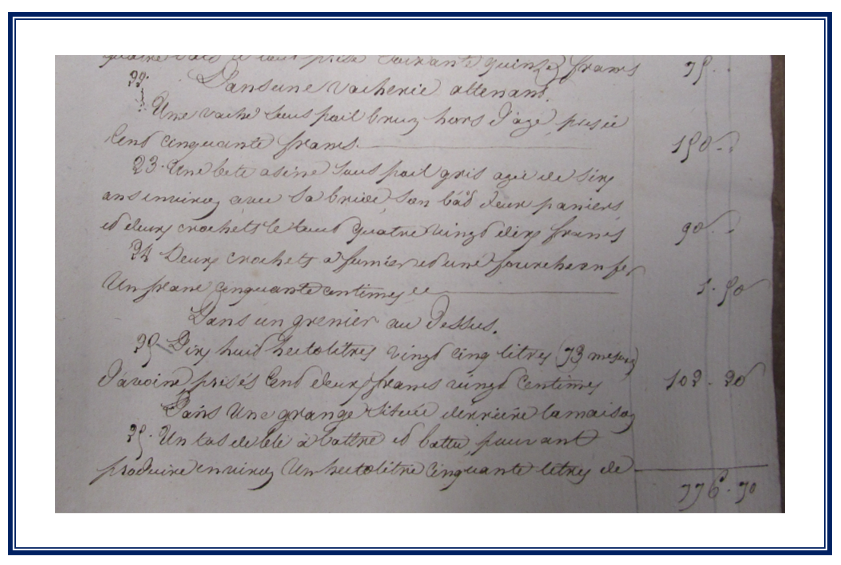 quatre bois le tout prisé soixante quinze francs 75..
22. Dans une vacherie attenant.
Une vache sous poil brun hors d'age prisée
Cent cinquante francs. 150..
23. Une bete asine sous poil gris agée de six
ans environ avec sa bride son bâd deux paniers
et deux crochets le tout quatre vingt dix francs 90..
24 Deux crochets a fumier et une fourche en fer
Un franc cinquante centimes 1.50
Dans un grenier au Dessus.
25 Dix huit hectolitres vingt cinq litres (73 mesures)
D'avoine prisés Cent deux francs vingt centimes 102.20
Dans Une grange située derriere la maison
25. Un tas de blé à battre et battu, pouvant
produire environ Un hectolitre cinquante litres de
776.70